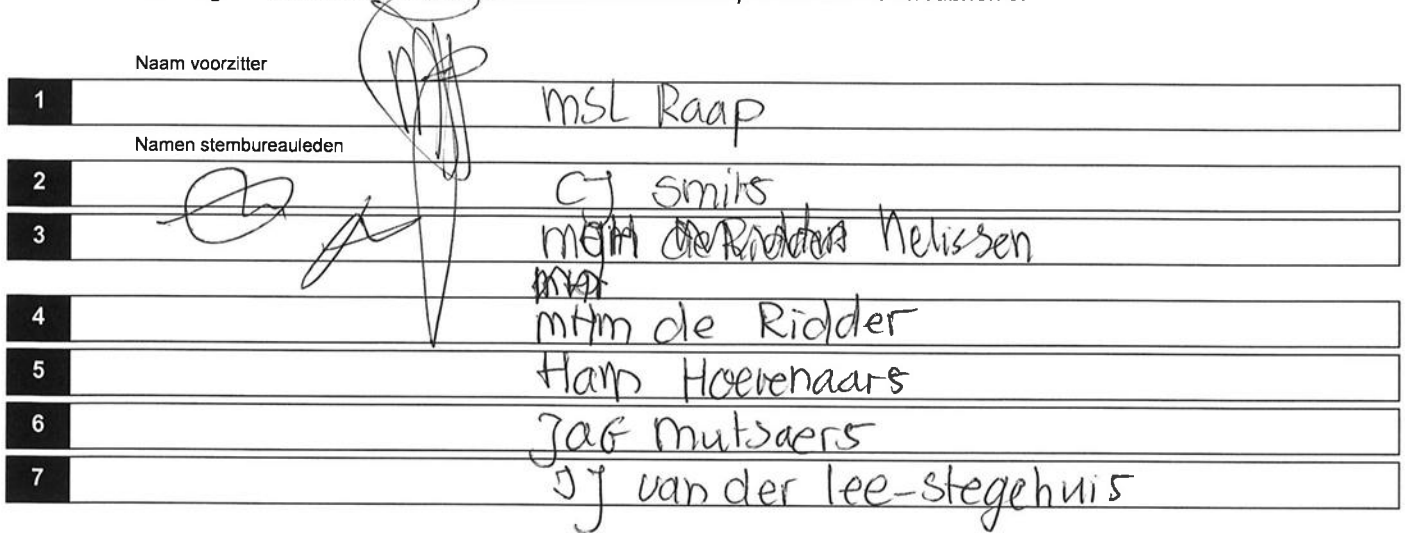 Naam voorzitter
1 MSL Raap
Namen stembureauleden
2 CJ Smits
3 Nelissen
4 MHM de Ridder
5 Hoevenaars
6 JAG Mutsaers
7 van der Lee-Stegehuis